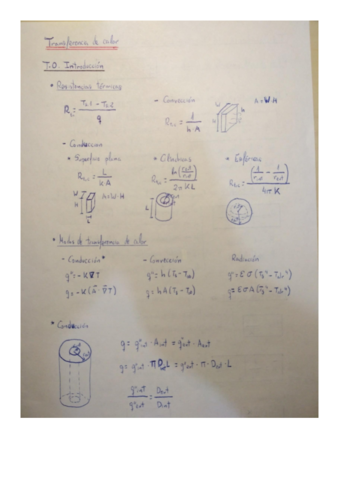 Transferencia de calor
T.0. Introducción
• Resistencias térmicas
R_t = (T_s1 - T_s2) / q
- Convección
R_t,c = 1 / (h·A)
W
A = W·H
- Conducción
• Superficie plana
R_t,c = L / (k A)
W
H
A = W·H
L
• Cilíndricas
L
• Esféricas
• Modos de transferencia de calor
- Conducción
q'' = -K ∇T
- Convección
q'' = h (T_s - T_∞)
q = h A (T_s - T_∞)
Radiación
• Conducción
q = q''_int · A_int = q''_ext · A_ext
q = q''_int π D_int L = q''_ext · π · D_ext · L
q''_int / q''_ext = D_ext / D_int